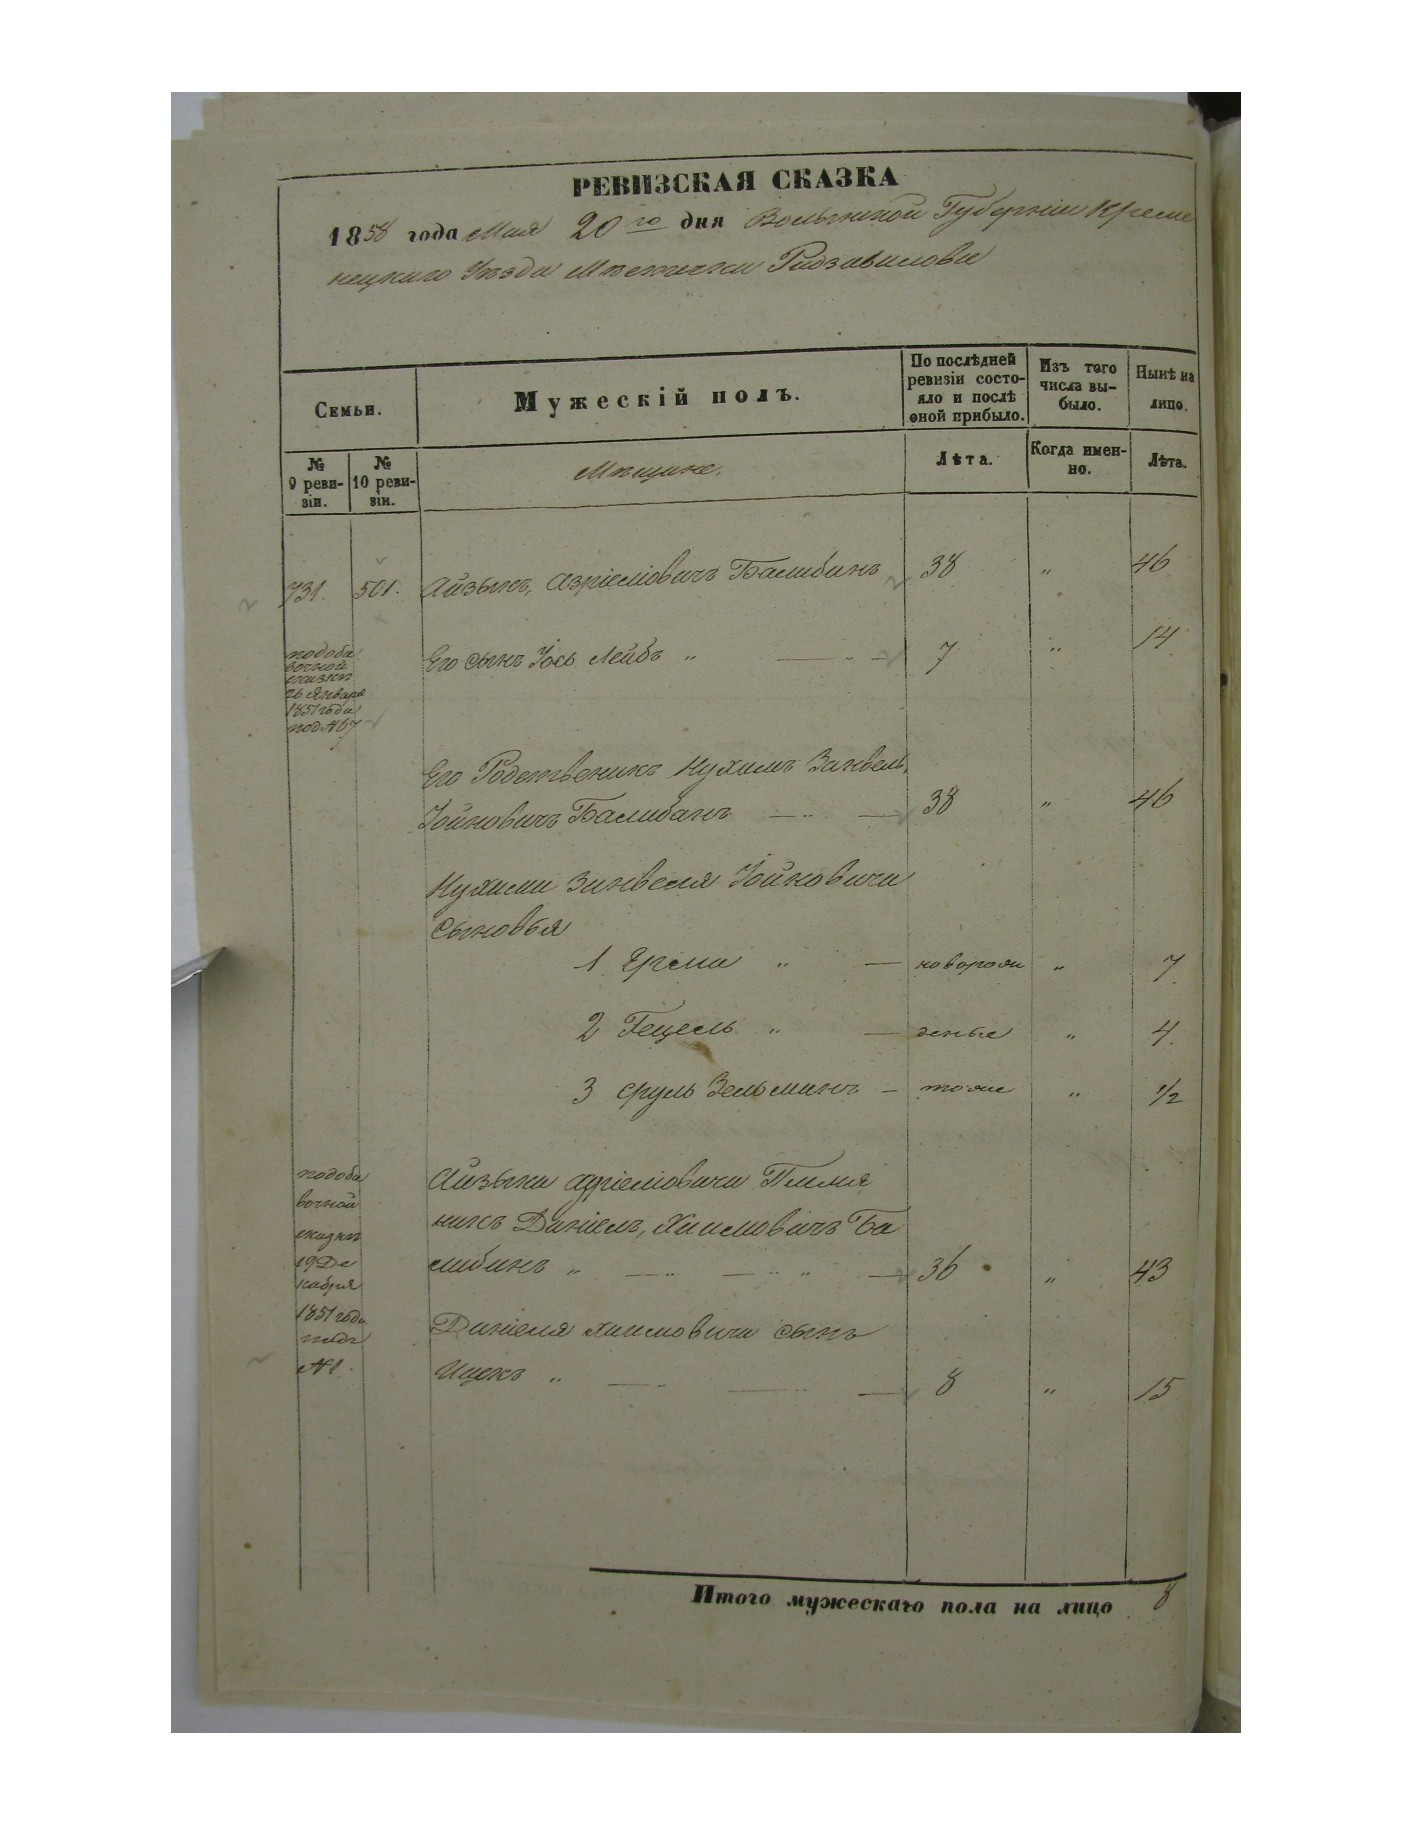 РЕВИЗСКАЯ СКАЗКА
1858 года Мая 20го дня Волынской Губерніи Креме
нецкаго Уѣзда Мѣстечка Радзивилова
Семьи.
Мужескій полъ.
По послѣдней
ревизіи состо-
яло и послѣ
оной прибыло.
Изъ того
числа вы-
было.
Нынѣ на
лицо.
№
9 реви-
зіи.
№
10 реви-
зіи.
Мѣщане.
Лѣта.
Когда имен-
но.
Лѣта.
731. 501. Айзыкъ, Азріелiовичъ Балабанъ 38 " 46
Его сынъ Іось Лейбъ " 7 " 14
подоба
вочной
сказки
26 Января
1851 года
под №67
Его Родственикъ Нухимъ Занвель,
Іойновичъ Балабанъ 38 " 46
Нухима Занвеля Іойновича
сыновья
1 Ерема " новорож " 7
2 Гецель " деные " 4.
3 Сруль Зельманъ тоже " 1/2
подоба
вочной
сказки
19 Де
кабря
1851 года
подъ
№1.
Айзыка Азріелiовича Племя
никъ Даніелъ, Хаимовичъ Ба
лабанъ " 36 " 43
Даніеля Хаимовича сынъ
Ицекъ " 8 " 15
Итого мужескаго пола на лицо 8